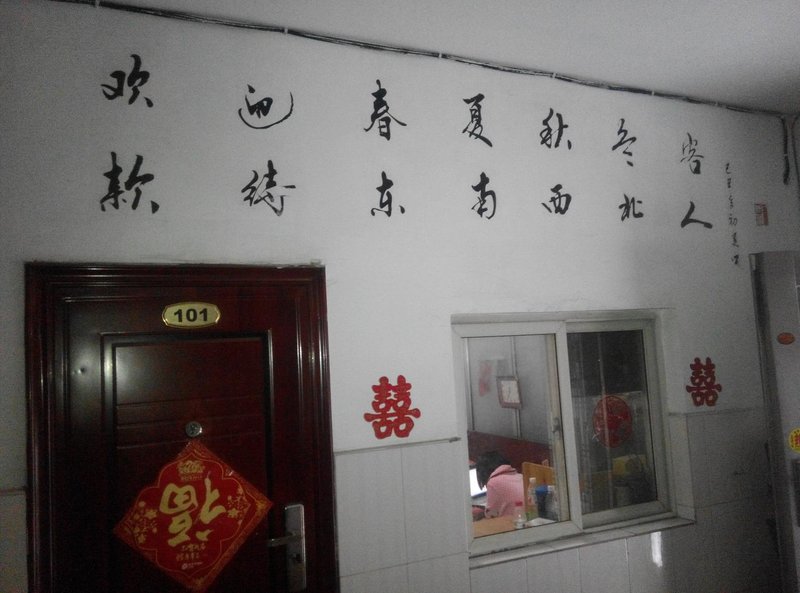 欢迎春夏秋冬客人
款待东南西北人
101
囍
囍
福